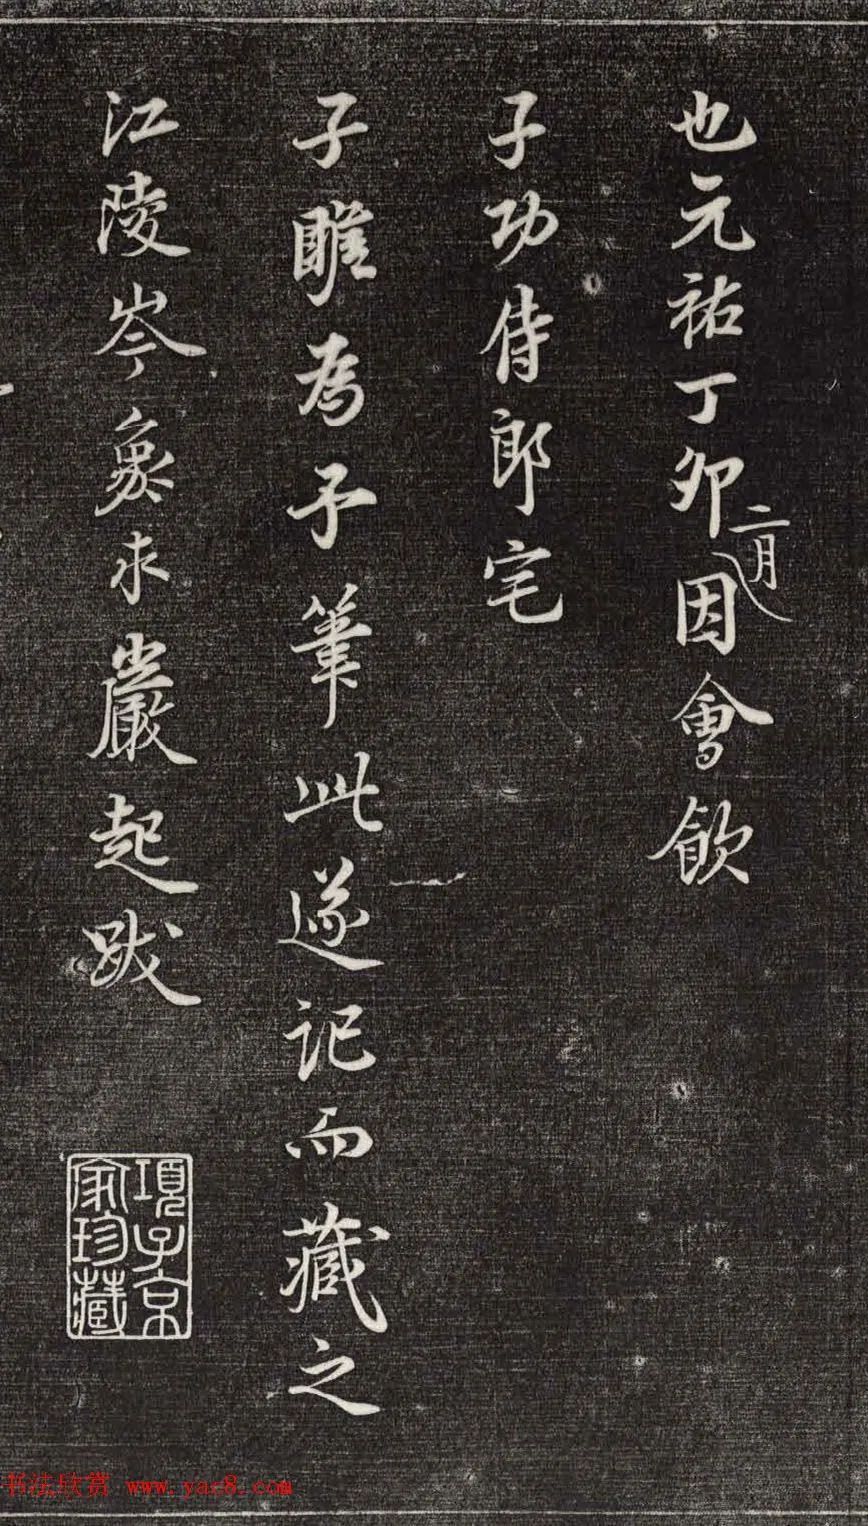 也元祐丁卯二月因會飲
子功侍郎宅
子雎爲予筆此遂記而藏之
江陵岑象求巖起跋
項子京家珍藏
书法欣赏 www.yac8.com